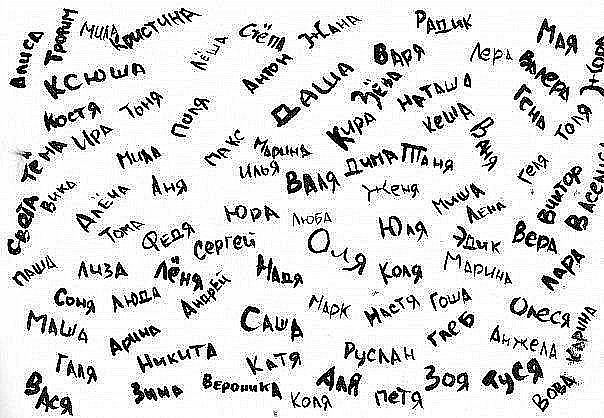 Алиса
Трофим
Мила
Кристина
Лёша
Стёпа
Жанна
Радик
Варя
Лера
Мая
Валера
Жора
Ксюша
Антон
Даша
Зёва
Наташа
Гена
Толя
Костя
Тоня
Поля
Кира
Кеша
Ваня
Тёма
Ира
Мила
Макс
Марина
Илья
Дима
Таня
Геля
Виктор
Василиса
Света
Вика
Алёна
Аня
Валя
Женя
Миша
Лена
Тома
Федя
Юра
Люба
Юля
Эдик
Вера
Сергей
Оля
Паша
Лиза
Лёня
Надя
Коля
Марина
Лара
Соня
Люда
Андрей
Марк
Настя
Гоша
Олеся
Маша
Арина
Саша
Глеб
Анжела
Карина
Галя
Никита
Катя
Руслан
Вася
Зина
Вероника
Коля
Аля
Петя
Зоя
Туся
Вова